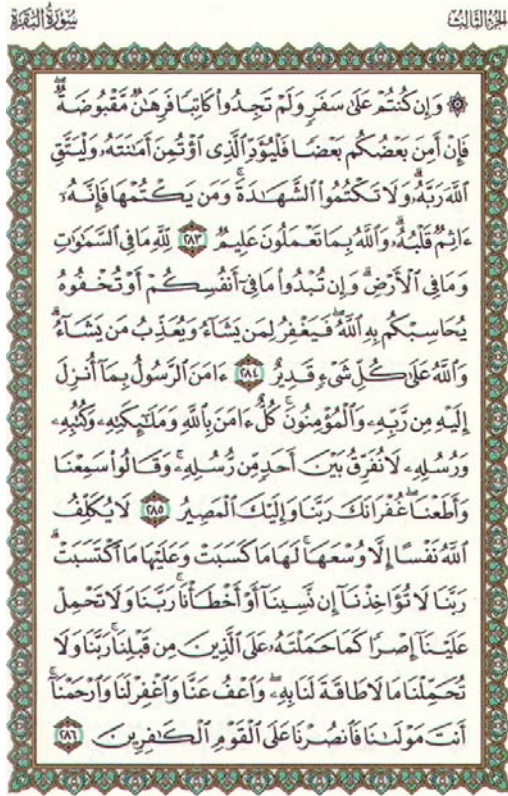 سُورَةُ البَقَرَةِ
الجُزءُ الثَّالِثُ
۞ وَإِن كُنتُمْ عَلَىٰ سَفَرٍ وَلَمْ تَجِدُوا۟ كَاتِبًا فَرِهَـٰنٌ مَّقْبُوضَةٌ ۖ
فَإِنْ أَمِنَ بَعْضُكُم بَعْضًا فَلْيُؤَدِّ ٱلَّذِى ٱؤْتُمِنَ أَمَـٰنَتَهُۥ وَلْيَتَّقِ
ٱللَّهَ رَبَّهُۥ ۗ وَلَا تَكْتُمُوا۟ ٱلشَّهَـٰدَةَ ۚ وَمَن يَكْتُمْهَا فَإِنَّهُۥٓ
ءَاثِمٌ قَلْبُهُۥ ۗ وَٱللَّهُ بِمَا تَعْمَلُونَ عَلِيمٌ ٢٨٣ لِّلَّهِ مَا فِى ٱلسَّمَـٰوَٰتِ
وَمَا فِى ٱلْأَرْضِ ۗ وَإِن تُبْدُوا۟ مَا فِىٓ أَنفُسِكُمْ أَوْ تُخْفُوهُ
يُحَاسِبْكُم بِهِ ٱللَّهُ ۖ فَيَغْفِرُ لِمَن يَشَآءُ وَيُعَذِّبُ مَن يَشَآءُ ۗ
وَٱللَّهُ عَلَىٰ كُلِّ شَىْءٍ قَدِيرٌ ٢٨٤ ءَامَنَ ٱلرَّسُولُ بِمَآ أُنزِلَ
إِلَيْهِ مِن رَّبِّهِۦ وَٱلْمُؤْمِنُونَ ۚ كُلٌّ ءَامَنَ بِٱللَّهِ وَمَلَـٰٓئِكَتِهِۦ وَكُتُبِهِۦ
وَرُسُلِهِۦ لَا نُفَرِّقُ بَيْنَ أَحَدٍ مِّن رُّسُلِهِۦ ۚ وَقَالُوا۟ سَمِعْنَا
وَأَطَعْنَا ۖ غُفْرَانَكَ رَبَّنَا وَإِلَيْكَ ٱلْمَصِيرُ ٢٨٥ لَا يُكَلِّفُ
ٱللَّهُ نَفْسًا إِلَّا وُسْعَهَا ۚ لَهَا مَا كَسَبَتْ وَعَلَيْهَا مَا ٱكْتَسَبَتْ ۗ
رَبَّنَا لَا تُؤَاخِذْنَآ إِن نَّسِينَآ أَوْ أَخْطَأْنَا ۚ رَبَّنَا وَلَا تَحْمِلْ
عَلَيْنَآ إِصْرًا كَمَا حَمَلْتَهُۥ عَلَى ٱلَّذِينَ مِن قَبْلِنَا ۚ رَبَّنَا وَلَا
تُحَمِّلْنَا مَا لَا طَاقَةَ لَنَا بِهِۦ ۖ وَٱعْفُ عَنَّا وَٱغْفِرْ لَنَا وَٱرْحَمْنَآ ۚ
أَنتَ مَوْلَىٰنَا فَٱنصُرْنَا عَلَى ٱلْقَوْمِ ٱلْكَـٰفِرِينَ ٢٨٦